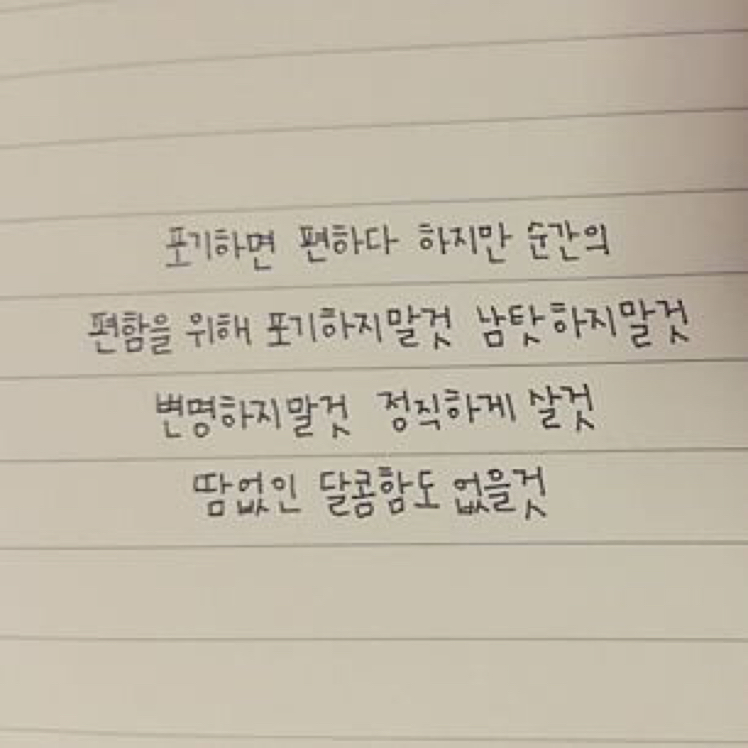 포기하면 편하다 하지만 순간의
편함을 위해 포기하지말것 남탓하지말것
변명하지말것 정직하게 살것
땀없인 달콤함도 없을것